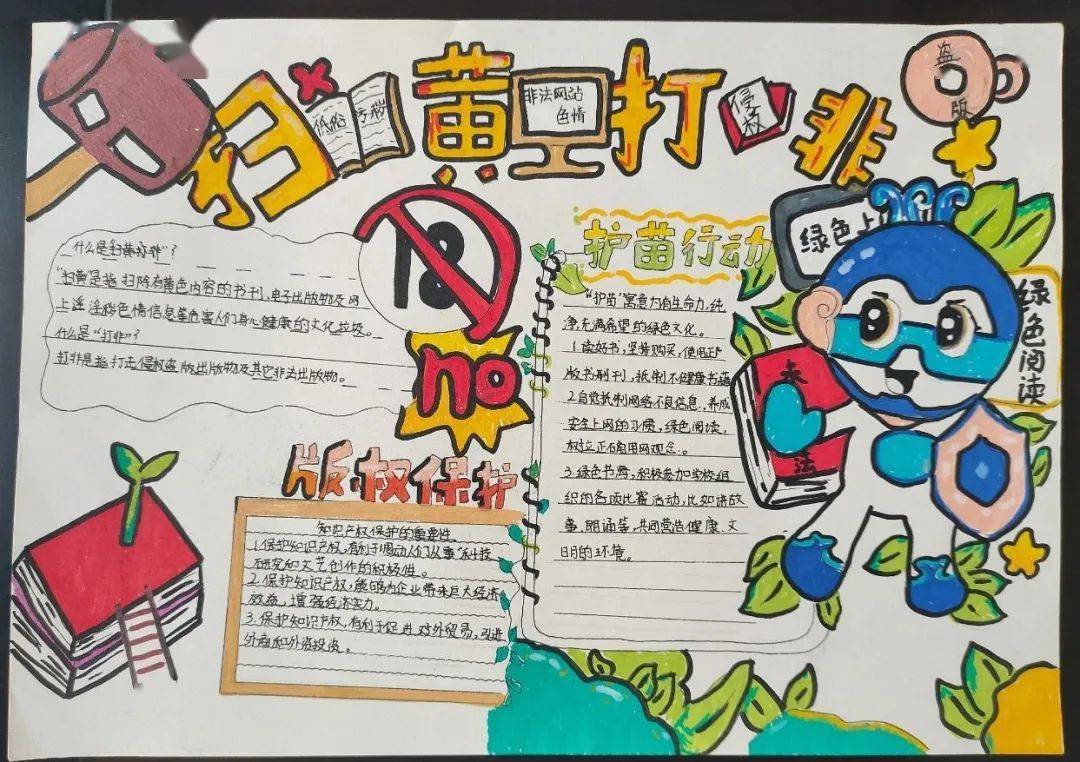 扫黄打非
低俗
非法网站
色情
侵权
盗版
什么是"扫黄打非"?
"扫黄"是指扫除有黄色内容的书刊,电子出版物及网
上淫秽色情信息等危害人们身心健康的文化垃圾。
什么是"打非"?
打非是指打击侵权盗版出版物及其它非法出版物。
18
no
护苗行动
"护苗"寓意为有生命力,纯
净充满希望的绿色文化。
1.读好书,坚持购买,使用正
版书刊,抵制不健康书籍
2.自觉抵制网络不良信息,养成
安全上网的习惯,绿色阅读,
树立正确用网观念。
3.绿色书籍,积极参加学校组
织的各项比赛活动,比如讲故
事,朗诵等,共同营造健康、文
明的环境。
绿色上
绿色阅读
法
版权保护
知识产权保护的重要性
1.保护知识产权,有利于调动人们从事科技
研究和文艺创作的积极性。
2.保护知识产权,能够为企业带来巨大经济
效益,增强经济实力。
3.保护知识产权,有利于促进对外贸易,引进
外商和外资投资。